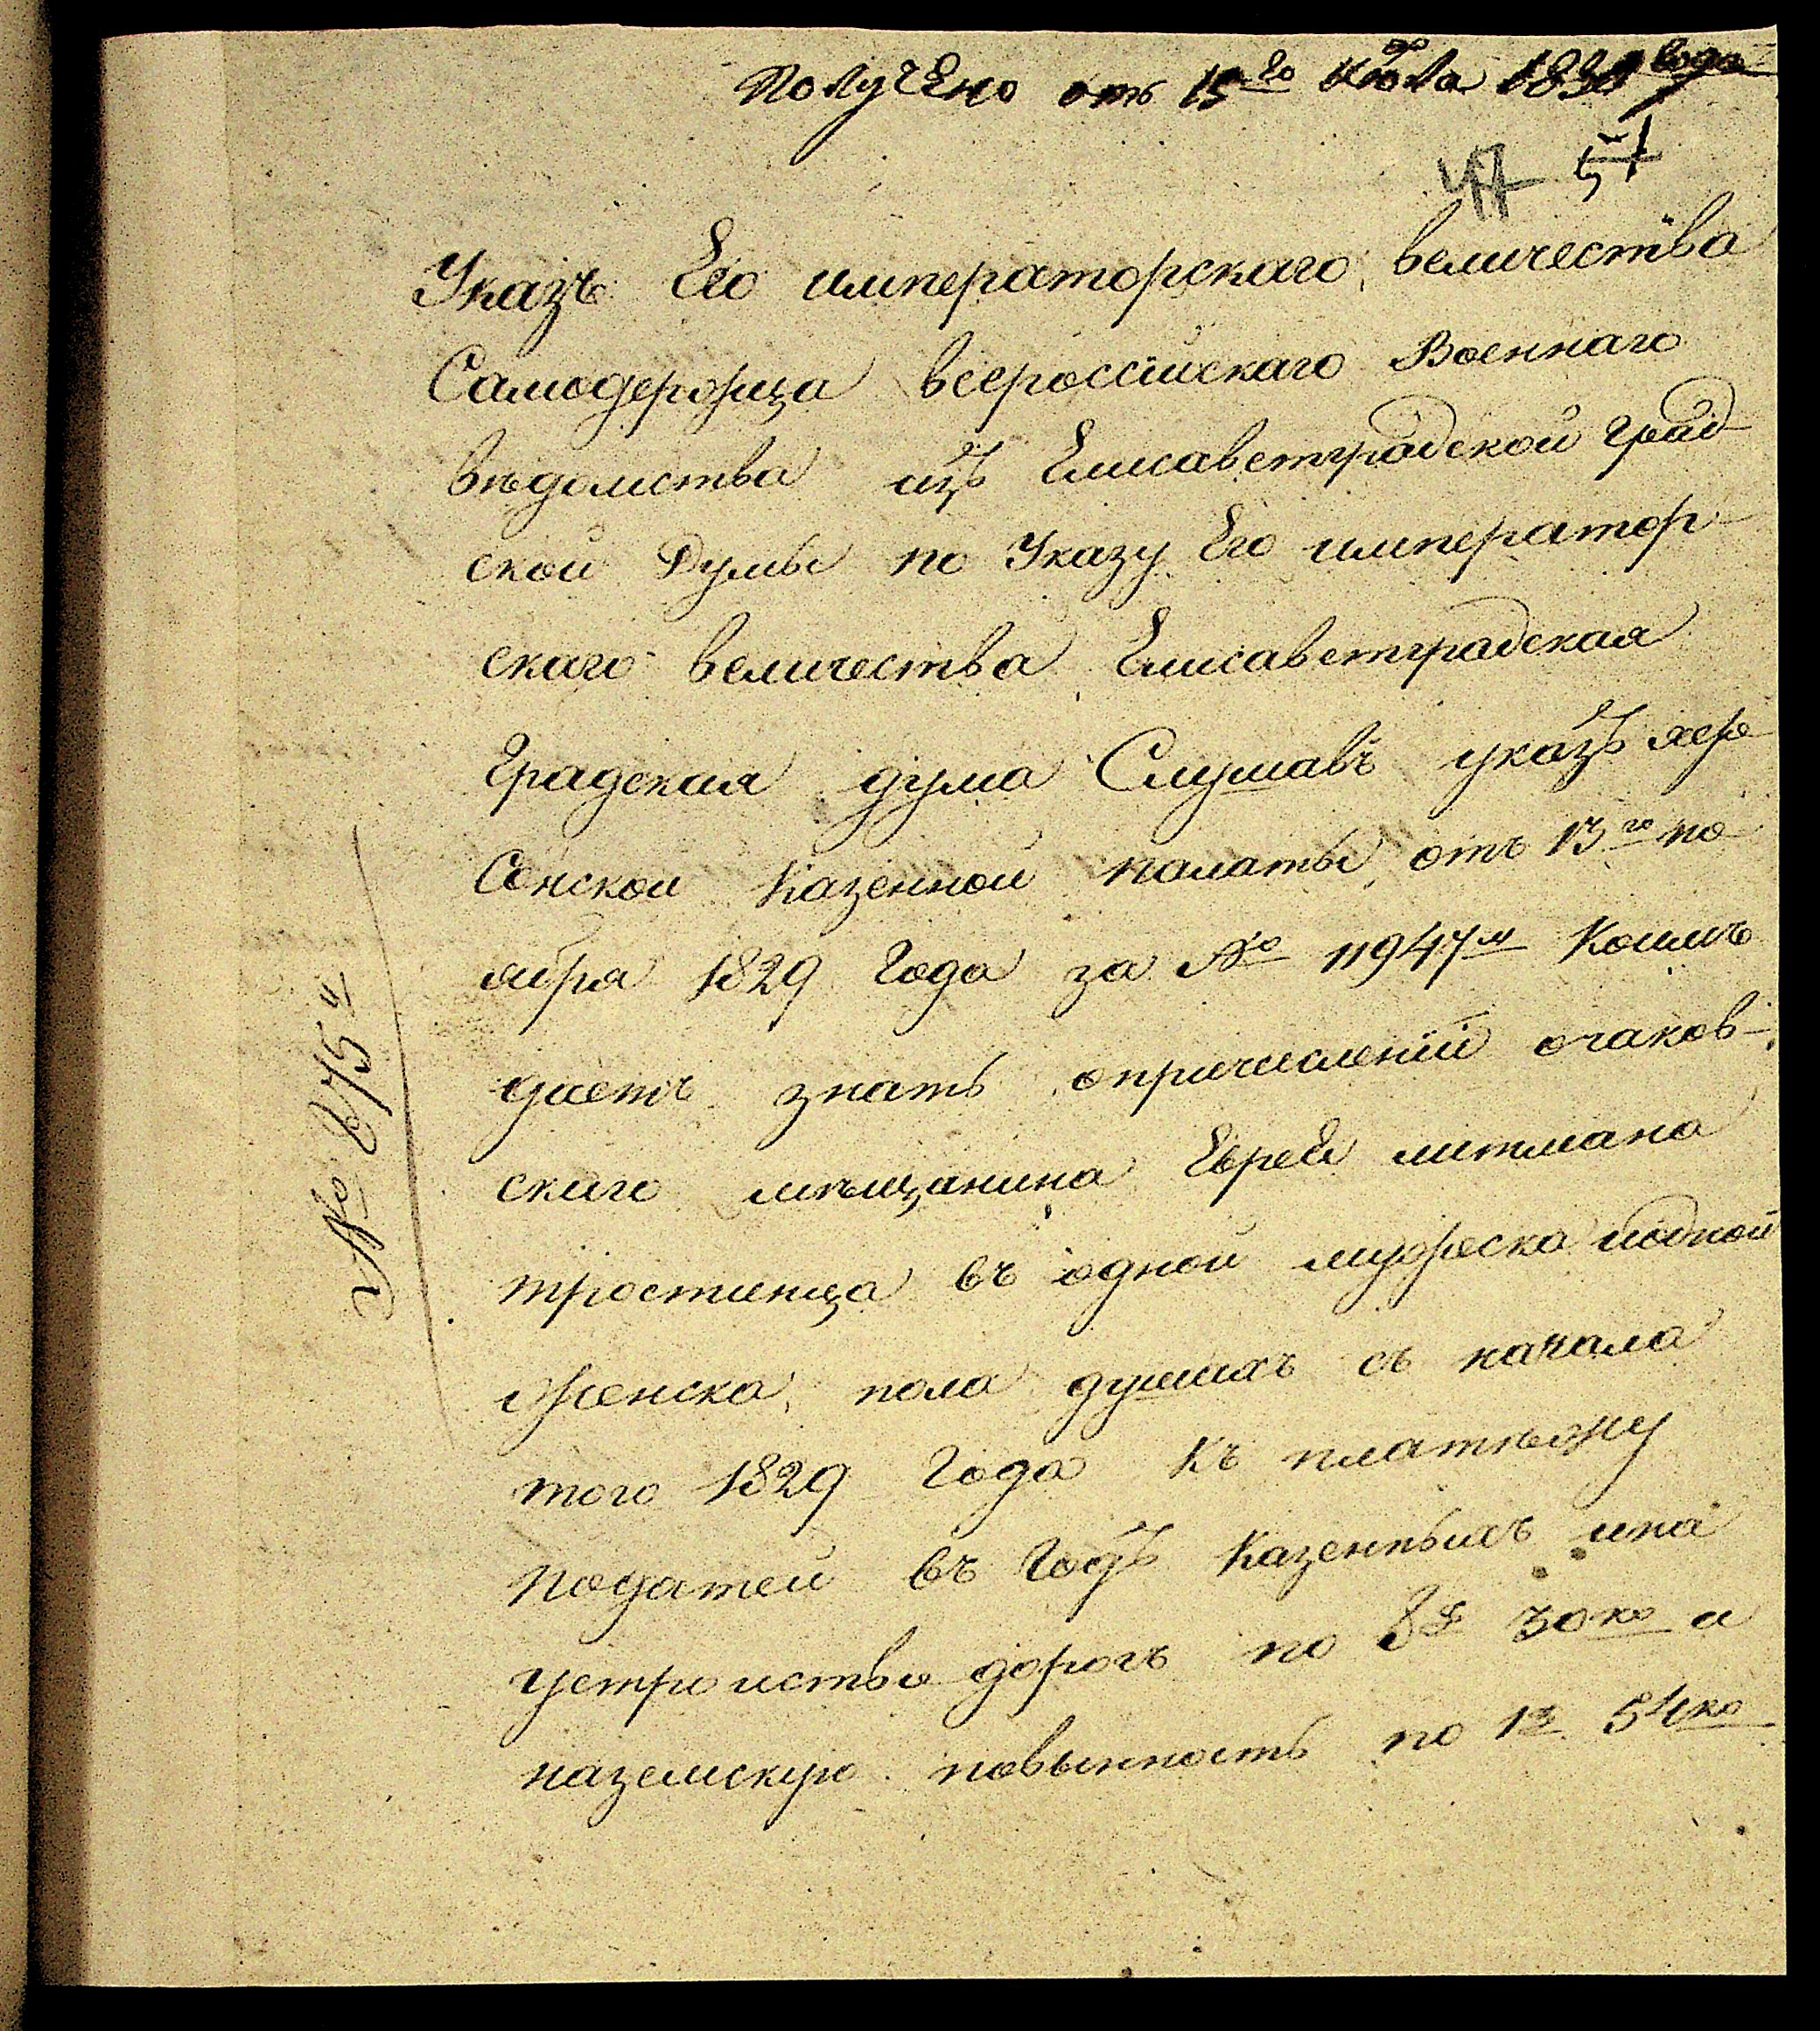 Получено отъ 15го Июля 1830 года
47 57
Указъ Его императорскаго величества
Самодержца всероссійскаго Военнаго
вѣдомства изъ Елисаветградской град
ской Думы по Указу Его император
скаго величества Елисаветградская
Градская дума Слушавъ указъ хер
Сонской Казенной палаты отъ 13го но
ября 1829 Года за № 11947м Коимъ
даетъ знать опричисленіи очаков-
скаго мѣщанина Еврея литмана
тростинца въ одной мужеска иодной
женска пола душахъ съ начала
того 1829 Года къ платѣжу
податей въ Годъ Казенныхъ ина
устроиство дорогъ по 8р 30ко и
наземскую повынность по 1р 54ко
№ 2754